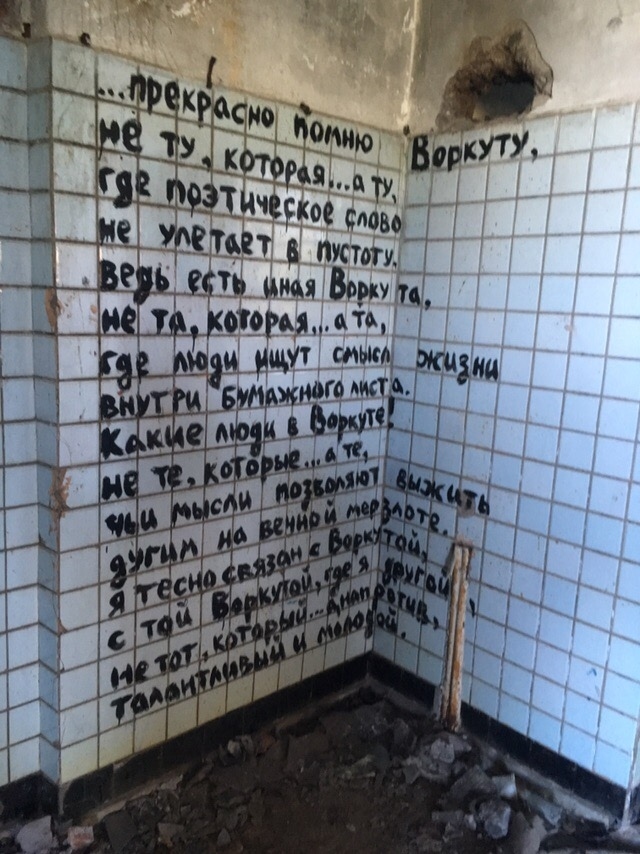 ...прекрасно помню Воркуту,
не ту, которая...а ту,
где поэтическое слово
не улетает в пустоту.
ведь есть иная Воркута,
не та, которая...а та,
где люди ищут смысл жизни
внутри бумажного листа.
Какие люди в Воркуте!
не те, которые...а те,
чьи мысли позволяют выжить
дугим на вечной мерзлоте.
я тесно связан с Воркутой,
с той Воркутой, где я другой,
не тот, который...а напротив,
талантливый и молодой.